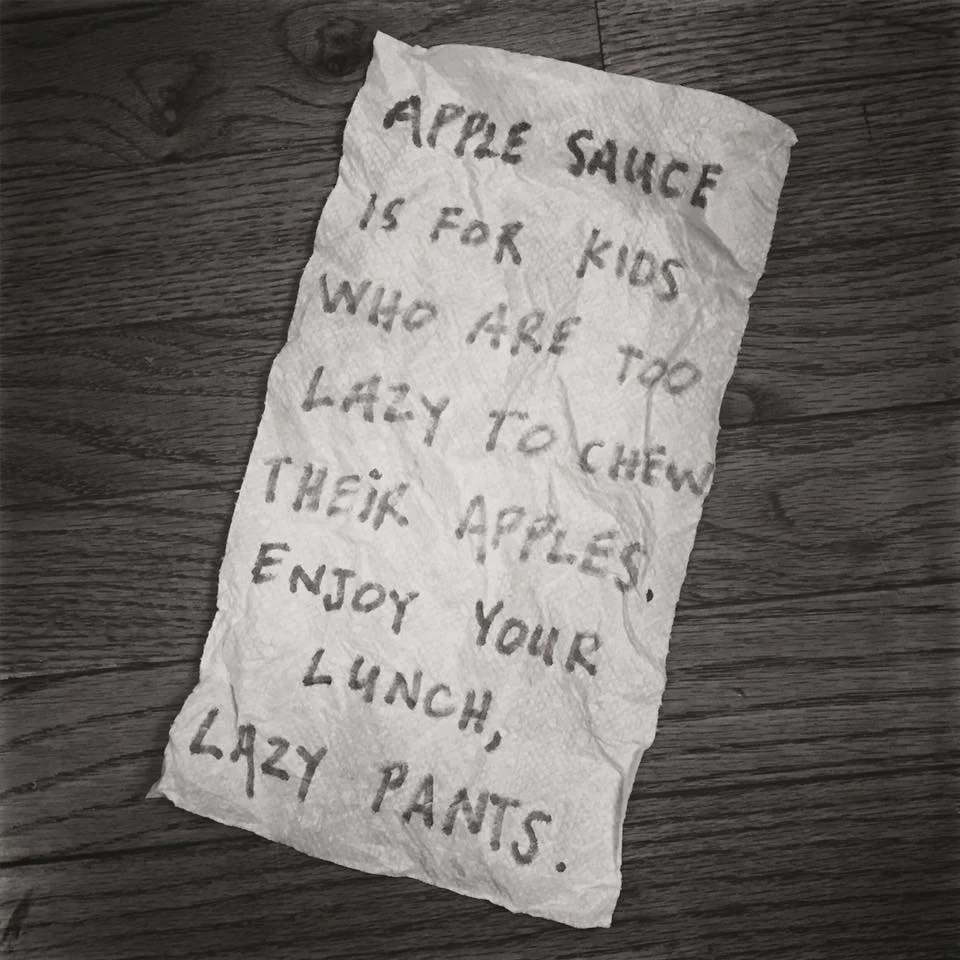 APPLE SAUCE
IS FOR KIDS
WHO ARE TOO
LAZY TO CHEW
THEIR APPLES.
ENJOY YOUR
LUNCH,
LAZY PANTS.